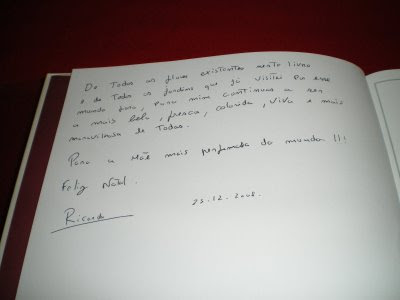 De Todas as flores existentes neste livro
e de Todos os jardins que já visitei por esse
mundo fora, para mim continuas a ser
a mais bela, fresca, colorida, viva e mais
maravilhosa de Todas.
Para a Mãe mais perfumada do mundo !!!
Feliz Natal.
25.12.2008.
Ricardo